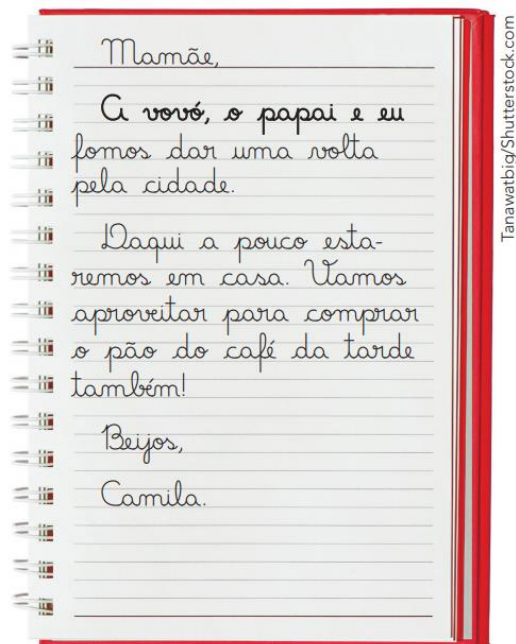 Mamãe,
A vovó, o papai e eu
fomos dar uma volta
pela cidade.
Daqui a pouco esta-
remos em casa. Vamos
aproveitar para comprar
o pão do café da tarde
também!
Beijos,
Camila.
Tanawatbig/Shutterstock.com